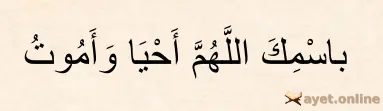 باسْمِكَ اللَّهُمَّ أَحْيَا وَأَمُوتُ
ayet.online